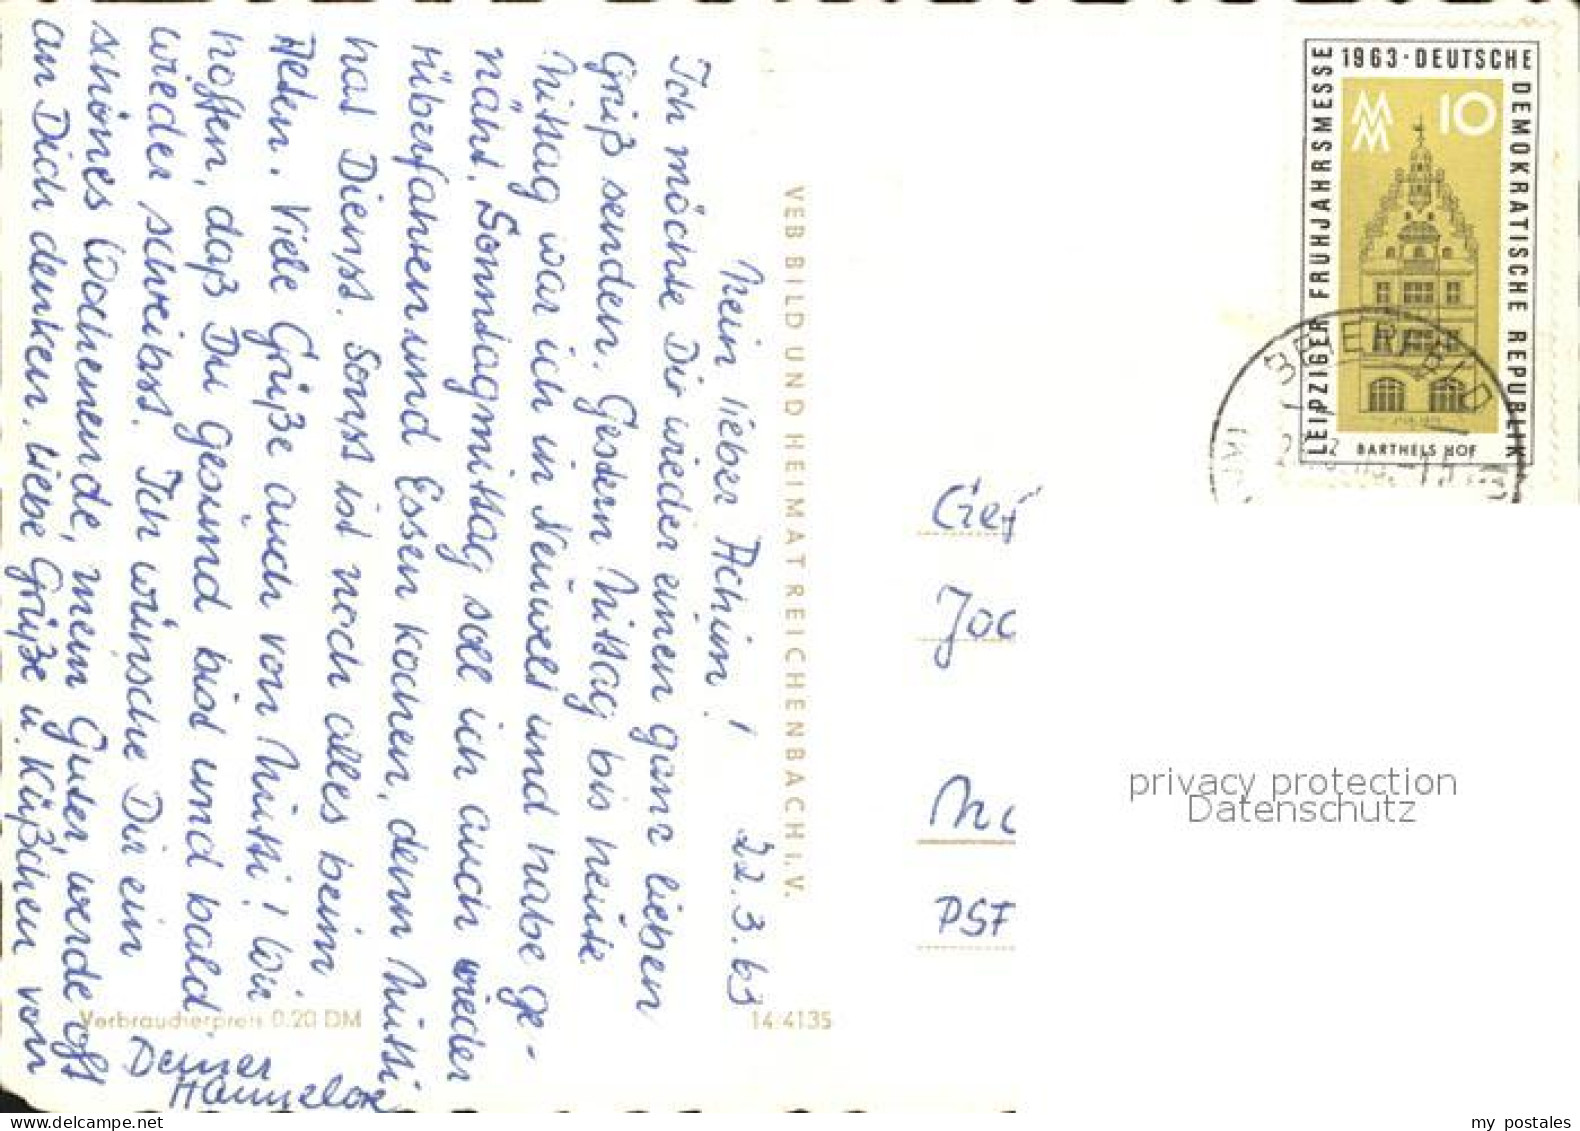 Mein lieber Achim! 22.3.63
Ich möchte Dir wieder einen ganz lieben
Gruß senden. Gestern Mittag bis heute
Mittag war ich in Neuwelt und habe ge-
näht. Sonntagmittag soll ich auch wieder
rüberfahren und Essen kochen, denn Mutti
hat Dienst. Sonst ist noch alles beim
Alten. Viele Grüße auch von Mutti! Wir
hoffen, daß Du gesund bist und bald
wieder schreibst. Ich wünsche Dir ein
schönes Wochenende, mein Guter, werde oft
an Dich denken. Liebe Grüße u. Küßchen von
Deiner
Hannelore
VEB BILD UND HEIMAT REICHENBACH I. V.
Verbraucherpreis 0.20 DM
14/4135
LEIPZIGER FRÜHJAHRSMESSE
1963 · DEUTSCHE
DEMOKRATISCHE REPUBLIK
MM
10
BARTHELS HOF
BEIERFELD
Gef
Joc
PSF
privacy protection
Datenschutz
my postales